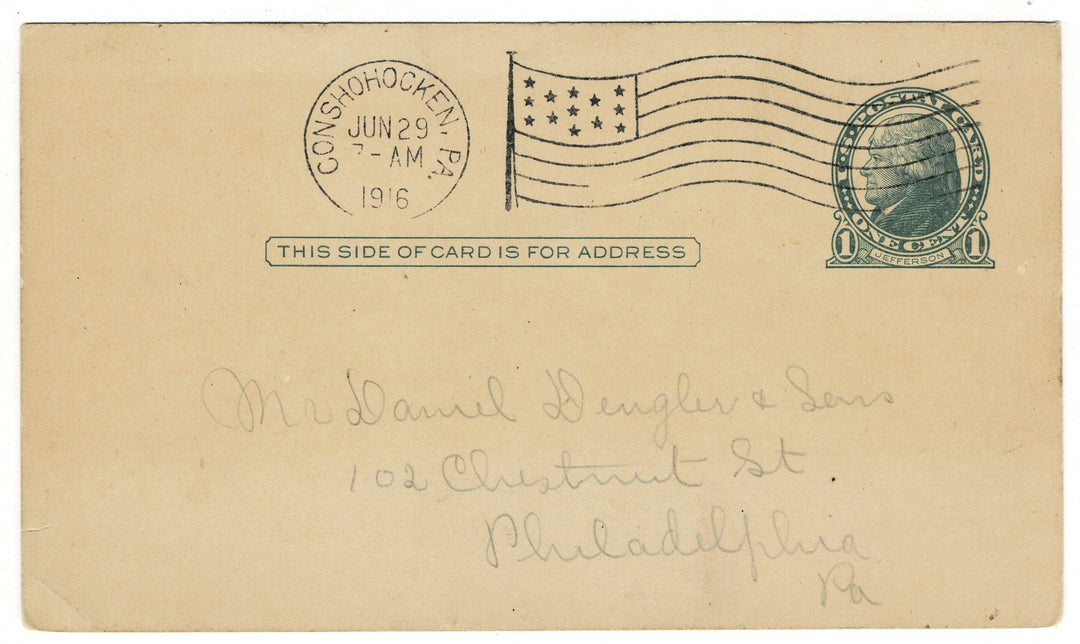 CONSHOHOCKEN, PA.
JUN 29
7 - AM
1916
U·S·POSTAL CARD
ONE CENT
1 JEFFERSON 1
THIS SIDE OF CARD IS FOR ADDRESS
Mr Daniel Dengler & Sons
102 Chestnut St.
Philadelphia
Pa